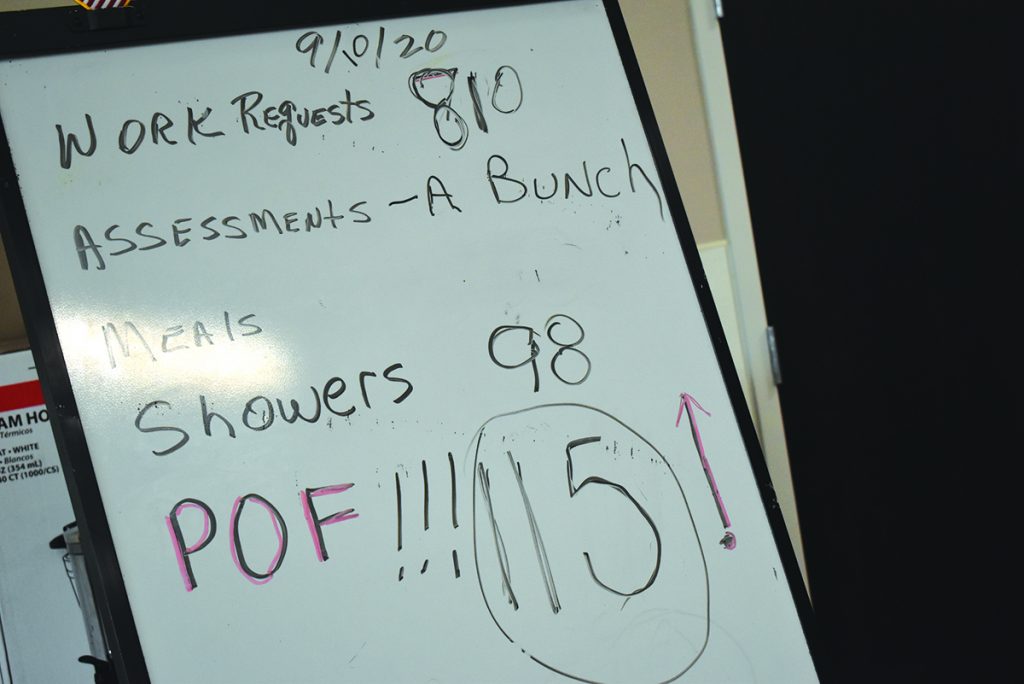 9/10/20
WORK Requests 810
ASSESSMENTS - A BUNCH
MEALS
Showers 98
POF !!! 115 !
AM HO
Térmicos
AT • WHITE
Blancos
Z (354 mL)
0 CT (1000/CS)